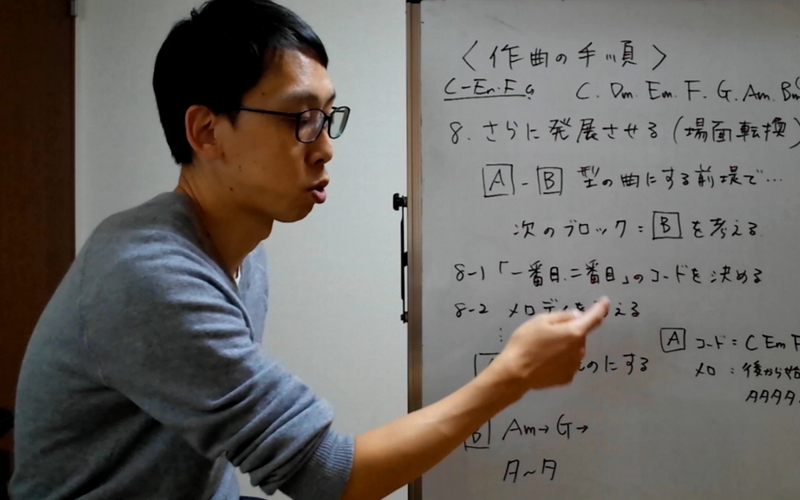 〈作曲の手順〉
C-Em-F G
C. Dm. Em. F. G. Am. Bm
8. さらに発展させる(場面転換)
A - B 型の曲にする前提で…
次のブロック=Bを考える
8-1 「一番目、二番目」のコードを決める
8-2 メロディを考える
のにする
A コード=C Em F
メロ:後から始
タタタタ
B Am→G→
タ~タ